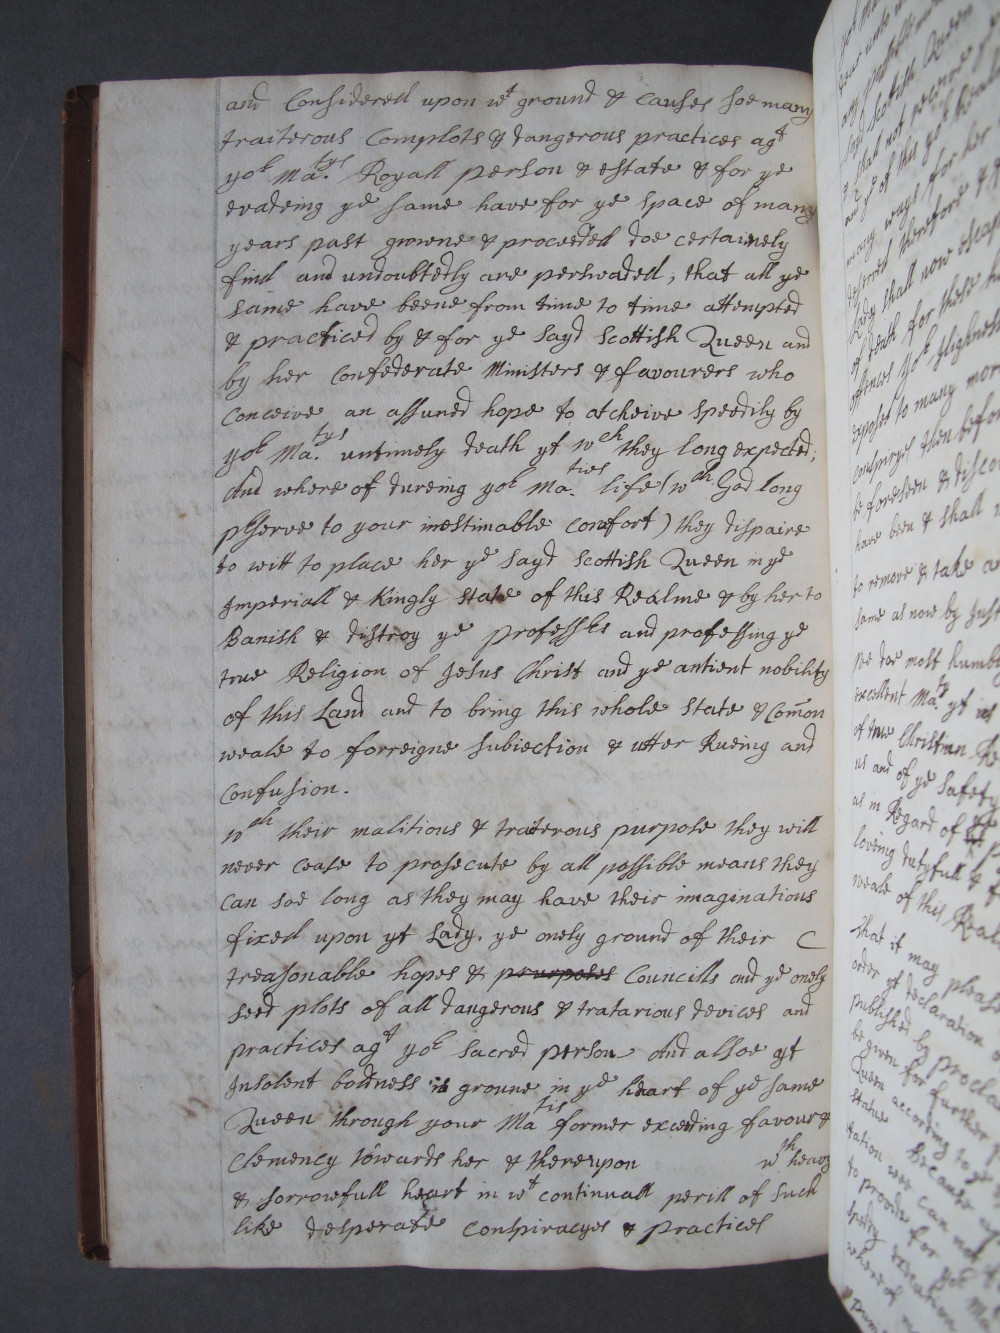 and Considered upon wt ground & causes soe many
traiterous Complots & dangerous practices agt
yor Ma:tys Royall person & estate & for ye
evadeing ye same have for ye space of many
years past growne & proceeded doe certainely
find and undoubtedly are perswaded, that all ye
same have beene from time to time attempted
& practiced by & for ye sayd Scottish Queen and
by her Confederate Ministers & favourers who
Conceive an assured hope to atcheive speedily by
yor Ma:tys untimely death yt wch they long expected;
And where of dureing yor Ma:ties life (wch God long
pserve to your inestimable comfort) they dispaire
to witt to place her ye sayd Scottish Queen in ye
Imperiall & Kingly State of this Realme & by her to
Banish & distroy ye professrs and professing ye
true Religion of Jesus Christ and ye antient nobility
of this Land and to bring this whole State & Comon
weale to forreigne subiection & utter Rueing and
Confusion.
wch their malitious & traiterous purpose they will
never cease to prosecute by all possible means they
Can soe long as they may have their imaginations
fixed upon yt Lady, ye onely ground of their
treasonable hopes & prurposes Councills and ye onely
seed plots of all dangerous & tratarious devices and
practices agt yor sacred person And alsoe yt
Insolent boldness is groune in ye heart of ye same
Queen through your Matis former exceeding favour &
Clemency towards her & thereupon wth heavy
& sorrowfull heart in wt continuall perill of such
like desperate Conspiracyes & practices
to remove & take a
excellent Maty yt
of true Christian Re
us and of ye Safety
as in Regard of
loveing dutyfull &
weale of this Real
That it may please
order yt declaration
published by procla
be given for further
Queen according to ye
Statue Because